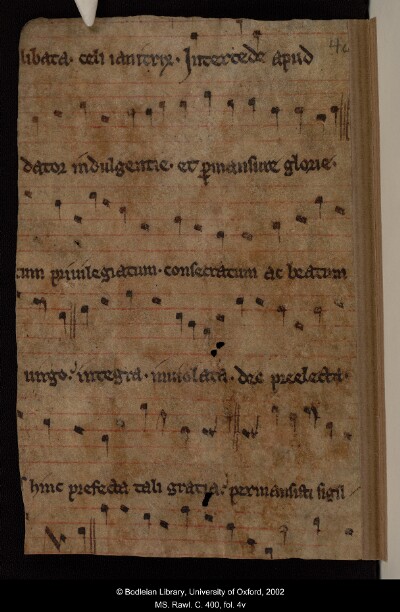 libata. celi ianitrix. Intercede apud
dator indulgentie. et pmansure glorie.
priuilegiatum. consecratum ac beatum
uirgo. integra. inuiolata. preelecta.
hinc prefecta tali gratia. permansisti sigil
© Bodleian Library, University of Oxford, 2002
MS. Rawl. C. 400, fol. 4v